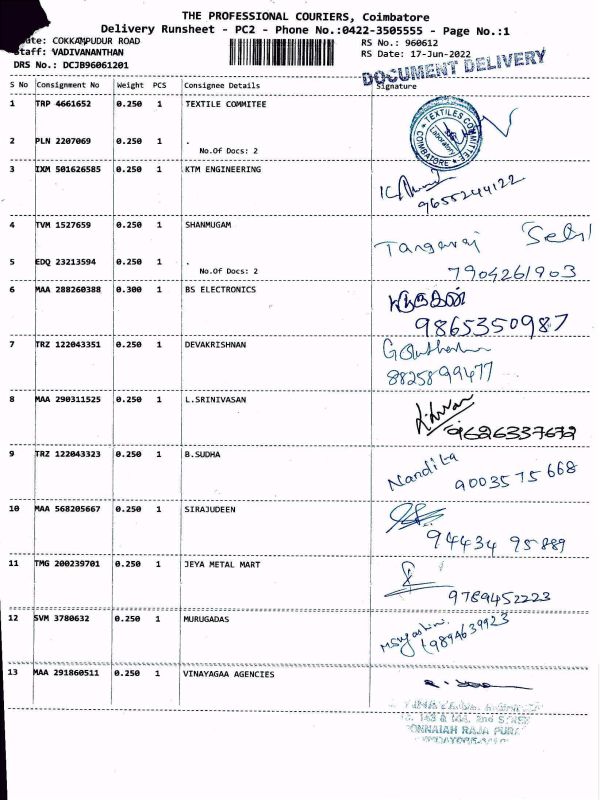 THE PROFESSIONAL COURIERS, Coimbatore
Delivery Runsheet - PC2 - Phone No.:0422-3505555 - Page No.:1
COKKAMPUDUR ROAD RS No.: 960612
Staff: VADIVANANTHAN RS Date: 17-Jun-2022
DRS No.: DCJB96061201 DOCUMENT DELIVERY
S No Consignment No Weight PCS Consignee Details Signature
1 TRP 4661652 0.250 1 TEXTILE COMMITEE
TEXTILES COMMITTEE Laboratory COIMBATORE
2 PLN 2207069 0.250 1 .
No.Of Docs: 2
3 IXM 501626585 0.250 1 KTM ENGINEERING
9655244122
4 TVM 1527659 0.250 1 SHANMUGAM
Tangaraj Selvi
5 EDQ 23213594 0.250 1 .
No.Of Docs: 2 7904261903
6 MAA 288260388 0.300 1 BS ELECTRONICS
9865350987
7 TRZ 122043351 0.250 1 DEVAKRISHNAN
8825899477
8 MAA 290311525 0.250 1 L.SRINIVASAN
9626337672
9 TRZ 122043323 0.250 1 B.SUDHA
Nandita 9003575668
10 MAA 568205667 0.250 1 SIRAJUDEEN
94434 95889
11 TMG 200239701 0.250 1 JEYA METAL MART
9789452223
12 SVM 3780632 0.250 1 MURUGADAS
9894639923
13 MAA 291860511 0.250 1 VINAYAGAA AGENCIES
RAJA